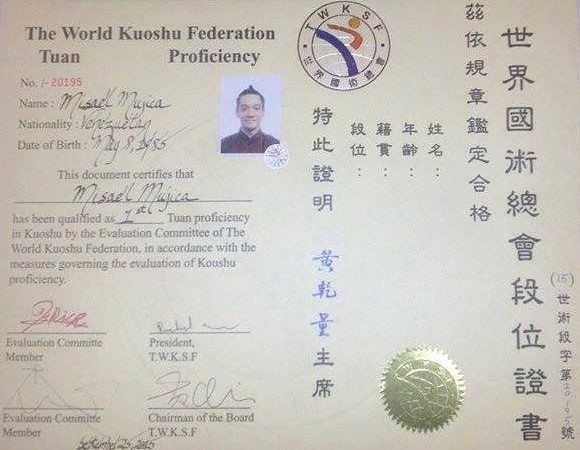 The World Kuoshu Federation
Tuan Proficiency
No. i-20195
Name : Misael Mujica
Nationality : Venezuelan
Date of Birth : May 8, 1985
This document certifies that
Misael Mujica
has been qualified as 1st Tuan proficiency
in Kuoshu by the Evaluation Committee of The
World Kuoshu Federation, in accordance with the
measures governing the evaluation of Koushu
proficiency.
Evaluation Committe
Member
President,
T.W.K.S.F
Evaluation Committee
Member
Chairman of the Board
T.W.K.S.F
September 25, 2015
T W K S F
世界國術總會
世界國術總會段位證書
(15)世術段字第20195號
茲依規章鑑定合格
姓名：
年齡：
籍貫：
段位：
特此證明
黃乾量主席